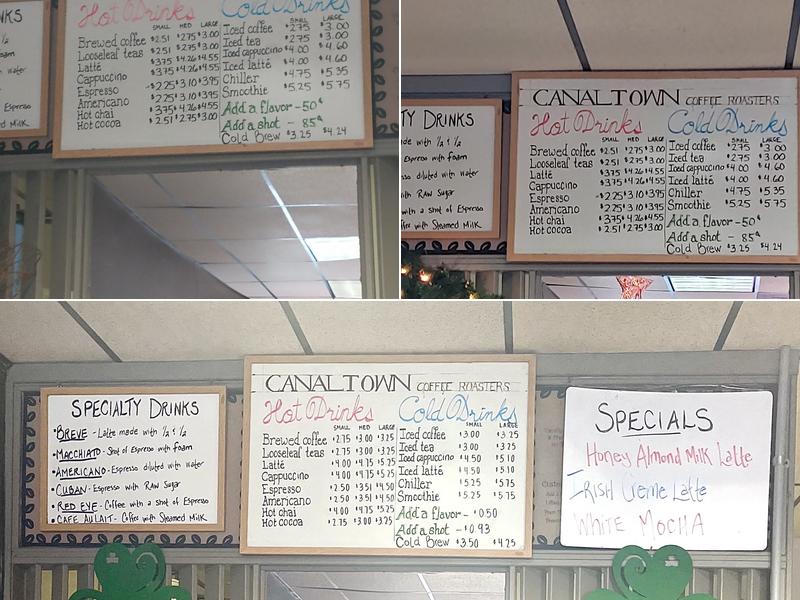 NKS
1/2
Foam
Water
Espresso
ed Milk
Hot Drinks
SMALL MED LARGE
Brewed coffee $2.51 $2.75 $3.00
Looseleaf teas $2.51 $2.75 $3.00
Latté $3.75 $4.26 $4.55
Cappuccino $3.75 $4.26 $4.55
Espresso -$2.25 $3.10 $3.95
Americano $2.25 $3.10 $3.95
Hot chai $3.75 $4.26 $4.55
Hot cocoa $2.51 $2.75 $3.00
Cold Drinks
SMALL LARGE
Iced coffee $2.75 $3.00
Iced tea $2.75 $3.00
Iced cappuccino $4.00 $4.60
Iced latté $4.00 $4.60
Chiller $4.75 $5.35
Smoothie $5.25 $5.75
Add a flavor -50¢
Add a shot - 85¢
Cold Brew $3.25 $4.24
TY DRINKS
made with 1/2 & 1/2
Espresso with foam
sso diluted with water
with RAW Sugar
with a shot of Espresso
offee with Steamed MILK
CANALTOWN COFFEE ROASTERS
Hot Drinks
SMALL MED LARGE
Brewed coffee $2.51 $2.75 $3.00
Looseleaf teas $2.51 $2.75 $3.00
Latté $3.75 $4.26 $4.55
Cappuccino $3.75 $4.26 $4.55
Espresso -$2.25 $3.10 $3.95
Americano $2.25 $3.10 $3.95
Hot chai $3.75 $4.26 $4.55
Hot cocoa $2.51 $2.75 $3.00
Cold Drinks
SMALL LARGE
Iced coffee $2.75 $3.00
Iced tea $2.75 $3.00
Iced cappuccino $4.00 $4.60
Iced latté $4.00 $4.60
Chiller $4.75 $5.35
Smoothie $5.25 $5.75
Add a flavor -50¢
Add a shot - 85¢
Cold Brew $3.25 $4.24
SPECIALTY DRINKS
•BREVE - Latte made with 1/2 & 1/2
•MACCHIATO - Shot of Espresso with foam
•AMERICANO - Espresso diluted with water
•CUBAN - Espresso with RAW Sugar
•RED EYE - Coffee with a Shot of Espresso
•CAFE AU LAIT - Coffee with Steamed MILK
CANALTOWN COFFEE ROASTERS
Hot Drinks
SMALL MED LARGE
Brewed coffee $2.75 $3.00 $3.25
Looseleaf teas $2.75 $3.00 $3.25
Latté $4.00 $4.75 $5.25
Cappuccino $4.00 $4.75 $5.25
Espresso $2.50 $3.50 $4.50
Americano $2.50 $3.51 $4.50
Hot chai $4.00 $4.75 $5.25
Hot cocoa $2.75 $3.00 $3.25
Cold Drinks
SMALL LARGE
Iced coffee $3.00 $3.25
Iced tea $3.00 $3.25
Iced cappuccino $4.50 $5.10
Iced latté $4.50 $5.10
Chiller $5.25 $5.75
Smoothie $5.25 $5.75
Add a flavor - $0.50
Add a shot - $0.93
Cold Brew $3.50 $4.25
SPECIALS
Honey Almond Milk Latte
IRISH Creme Latte
WHITE MOCHA